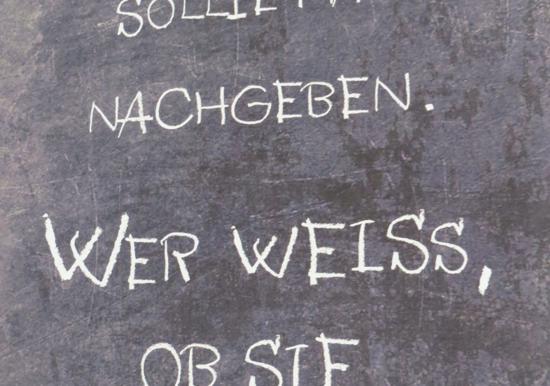 SOLLTE
NACHGEBEN.
WER WEISS,
OB SIE